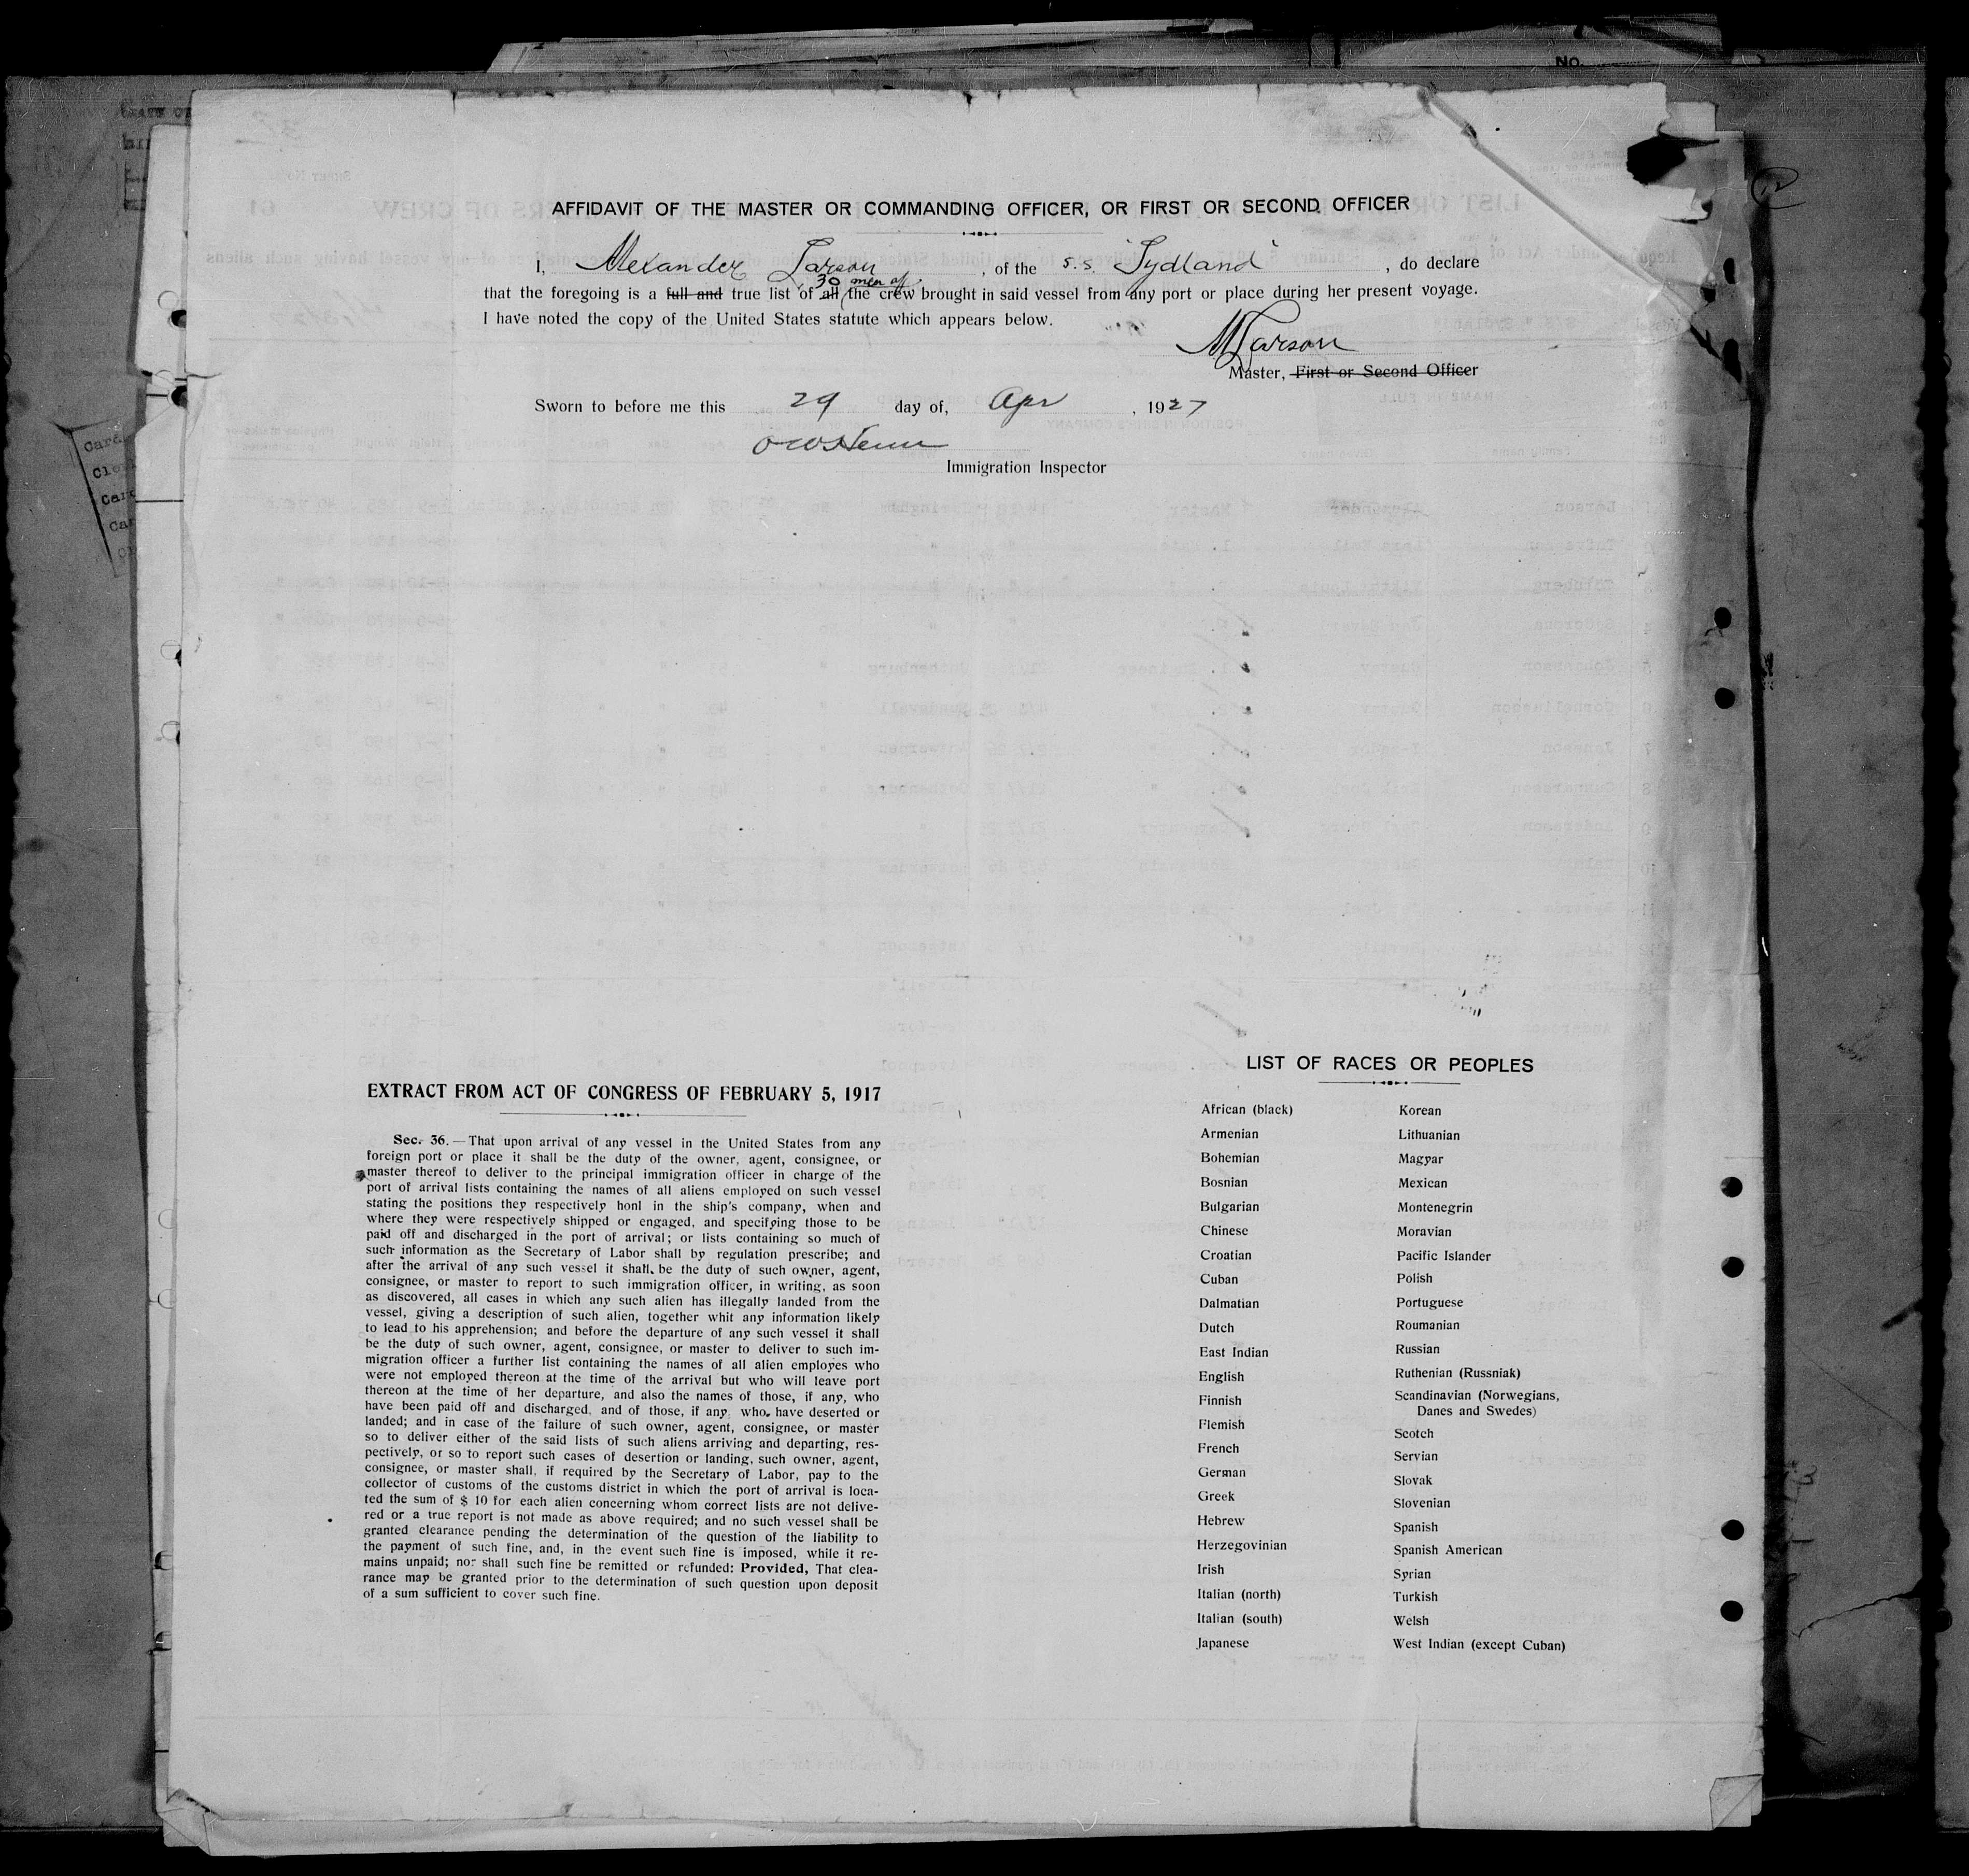 No.
AFFIDAVIT OF THE MASTER OR COMMANDING OFFICER, OR FIRST OR SECOND OFFICER
I, Alexander Larson, of the s.s. "Sydland", do declare
30 men of
that the foregoing is a full and true list of all the crew brought in said vessel from any port or place during her present voyage.
I have noted the copy of the United States statute which appears below.
Larson
Master, First or Second Officer
Sworn to before me this 29 day of, Apr, 1927
Immigration Inspector
EXTRACT FROM ACT OF CONGRESS OF FEBRUARY 5, 1917
Sec. 36. — That upon arrival of any vessel in the United States from any
foreign port or place it shall be the duty of the owner, agent, consignee, or
master thereof to deliver to the principal immigration officer in charge of the
port of arrival lists containing the names of all aliens employed on such vessel
stating the positions they respectively honl in the ship's company, when and
where they were respectively shipped or engaged, and specifying those to be
paid off and discharged in the port of arrival; or lists containing so much of
such information as the Secretary of Labor shall by regulation prescribe; and
after the arrival of any such vessel it shall be the duty of such owner, agent,
consignee, or master to report to such immigration officer, in writing, as soon
as discovered, all cases in which any such alien has illegally landed from the
vessel, giving a description of such alien, together whit any information likely
to lead to his apprehension; and before the departure of any such vessel it shall
be the duty of such owner, agent, consignee, or master to deliver to such im-
migration officer a further list containing the names of all alien employes who
were not employed thereon at the time of the arrival but who will leave port
thereon at the time of her departure, and also the names of those, if any, who
have been paid off and discharged, and of those, if any, who have deserted or
landed; and in case of the failure of such owner, agent, consignee, or master
so to deliver either of the said lists of such aliens arriving and departing, res-
pectively, or so to report such cases of desertion or landing, such owner, agent,
consignee, or master shall, if required by the Secretary of Labor, pay to the
collector of customs of the customs district in which the port of arrival is loca-
ted the sum of $ 10 for each alien concerning whom correct lists are not delive-
red or a true report is not made as above required; and no such vessel shall be
granted clearance pending the determination of the question of the liability to
the payment of such fine, and, in the event such fine is imposed, while it re-
mains unpaid; nor shall such fine be remitted or refunded: Provided, That clea-
rance may be granted prior to the determination of such question upon deposit
of a sum sufficient to cover such fine.
LIST OF RACES OR PEOPLES
African (black)
Armenian
Bohemian
Bosnian
Bulgarian
Chinese
Croatian
Cuban
Dalmatian
Dutch
East Indian
English
Finnish
Flemish
French
German
Greek
Hebrew
Herzegovinian
Irish
Italian (north)
Italian (south)
Japanese
Korean
Lithuanian
Magyar
Mexican
Montenegrin
Moravian
Pacific Islander
Polish
Portuguese
Roumanian
Russian
Ruthenian (Russniak)
Scandinavian (Norwegians,
Danes and Swedes)
Scotch
Servian
Slovak
Slovenian
Spanish
Spanish American
Syrian
Turkish
Welsh
West Indian (except Cuban)